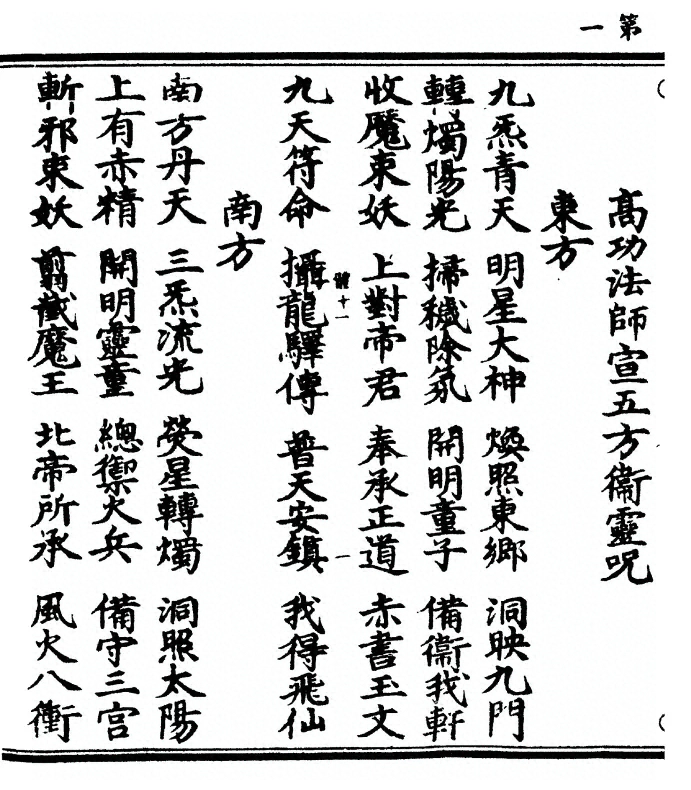 第一
高功法師宣五方衞靈呪
東方
九炁青天 明星大神 煥照東鄉 洞映九門
轉燭陽光 掃穢除氛 開明童子 備衞我軒
收魔束妖 上對帝君 奉承正道 赤書玉文
九天符命 攝龍驛傳 普天安鎮 我得飛仙
南方
南方丹天 三炁流光 熒星轉燭 洞照太陽
上有赤精 開明靈童 總禦火兵 備守三宮
斬邪束妖 翦截魔王 北帝所承 風火八衝